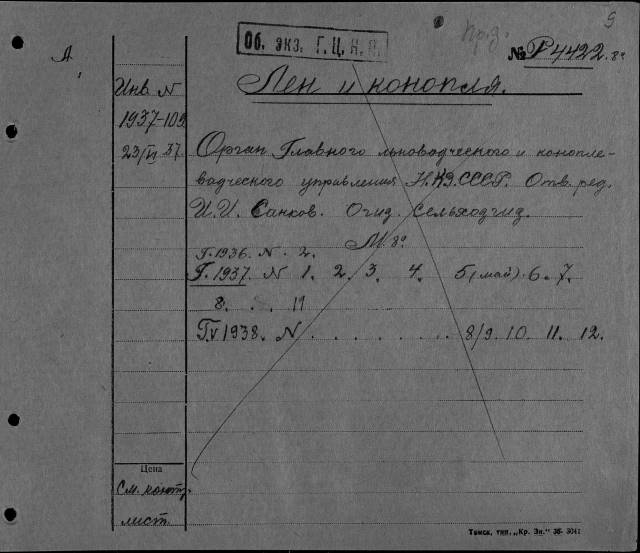 9
Об. экз. Г.Ц.К.П.
№ Р4422.8º
А
Инв N
1937-109
23/VI 37.
Лен и конопля.
Орган Главного льноводческого и конопле-
водческого управления Н.К.З. СССР. Отв. ред.
И.И. Санков. Огиз. Сельхозгиз.
М. 8º
Г. 1936. N. 2.
Г. 1937. N 1. 2. 3. 4. 5 (май). 6. 7.
8. . . 11
Г. 1938. N . . . . . . . 8/9. 10. 11. 12.
Цена
См. контр.
лист.
Томск, тип. „Кр. Зн." 36- 3041